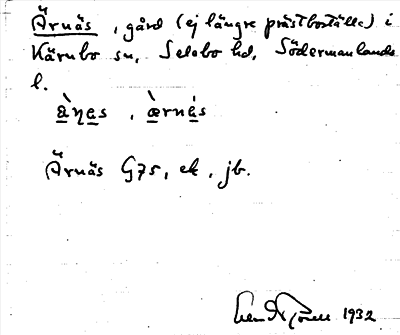 Ärnäs, gård (ej längre prästboställe) i
Kärnbo sn, Selebo hd, Södermanlands
l.
àṇes, ærnés
Ärnäs G75, ek, jb.
1932